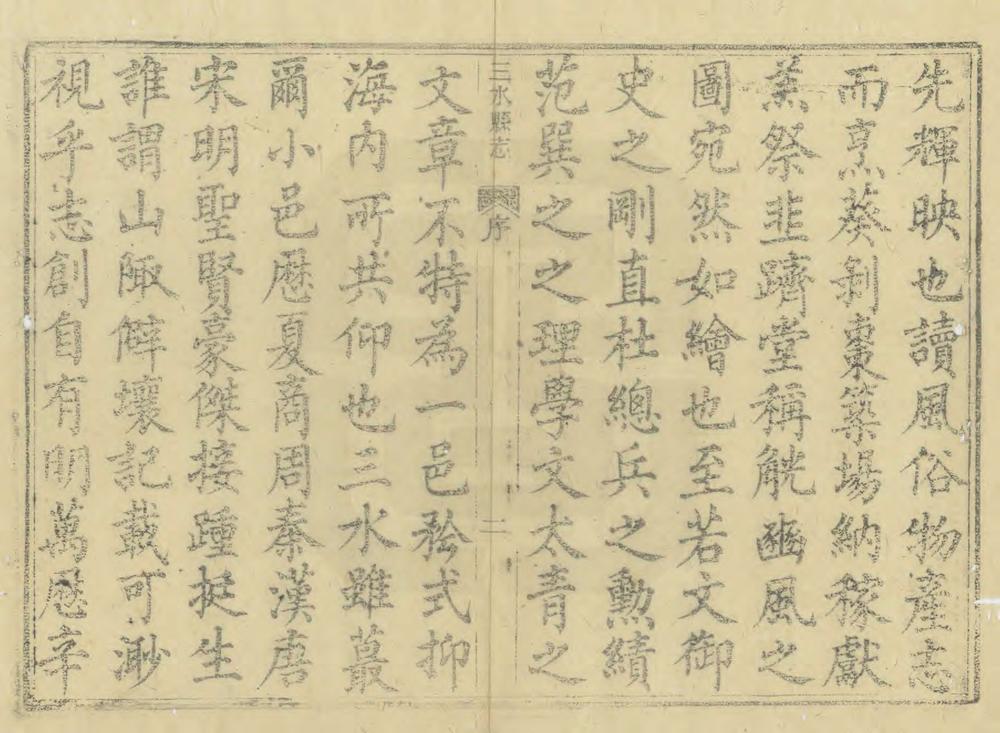 先輝映也讀風俗物產志
而烹葵剝棗築場納稼獻
羔祭韭躋堂稱觥豳風之
圖宛然如繪也至若文御
史之剛直杜總兵之勳績
范巽之之理學文太青之
三水縣志
序
二
文章不特為一邑矜式抑
海內所共仰也三水雖蕞
爾小邑歷夏商周秦漢唐
宋明聖賢豪傑接踵挺生
誰謂山陬僻壤記載可渺
視乎志創自有明萬歷辛